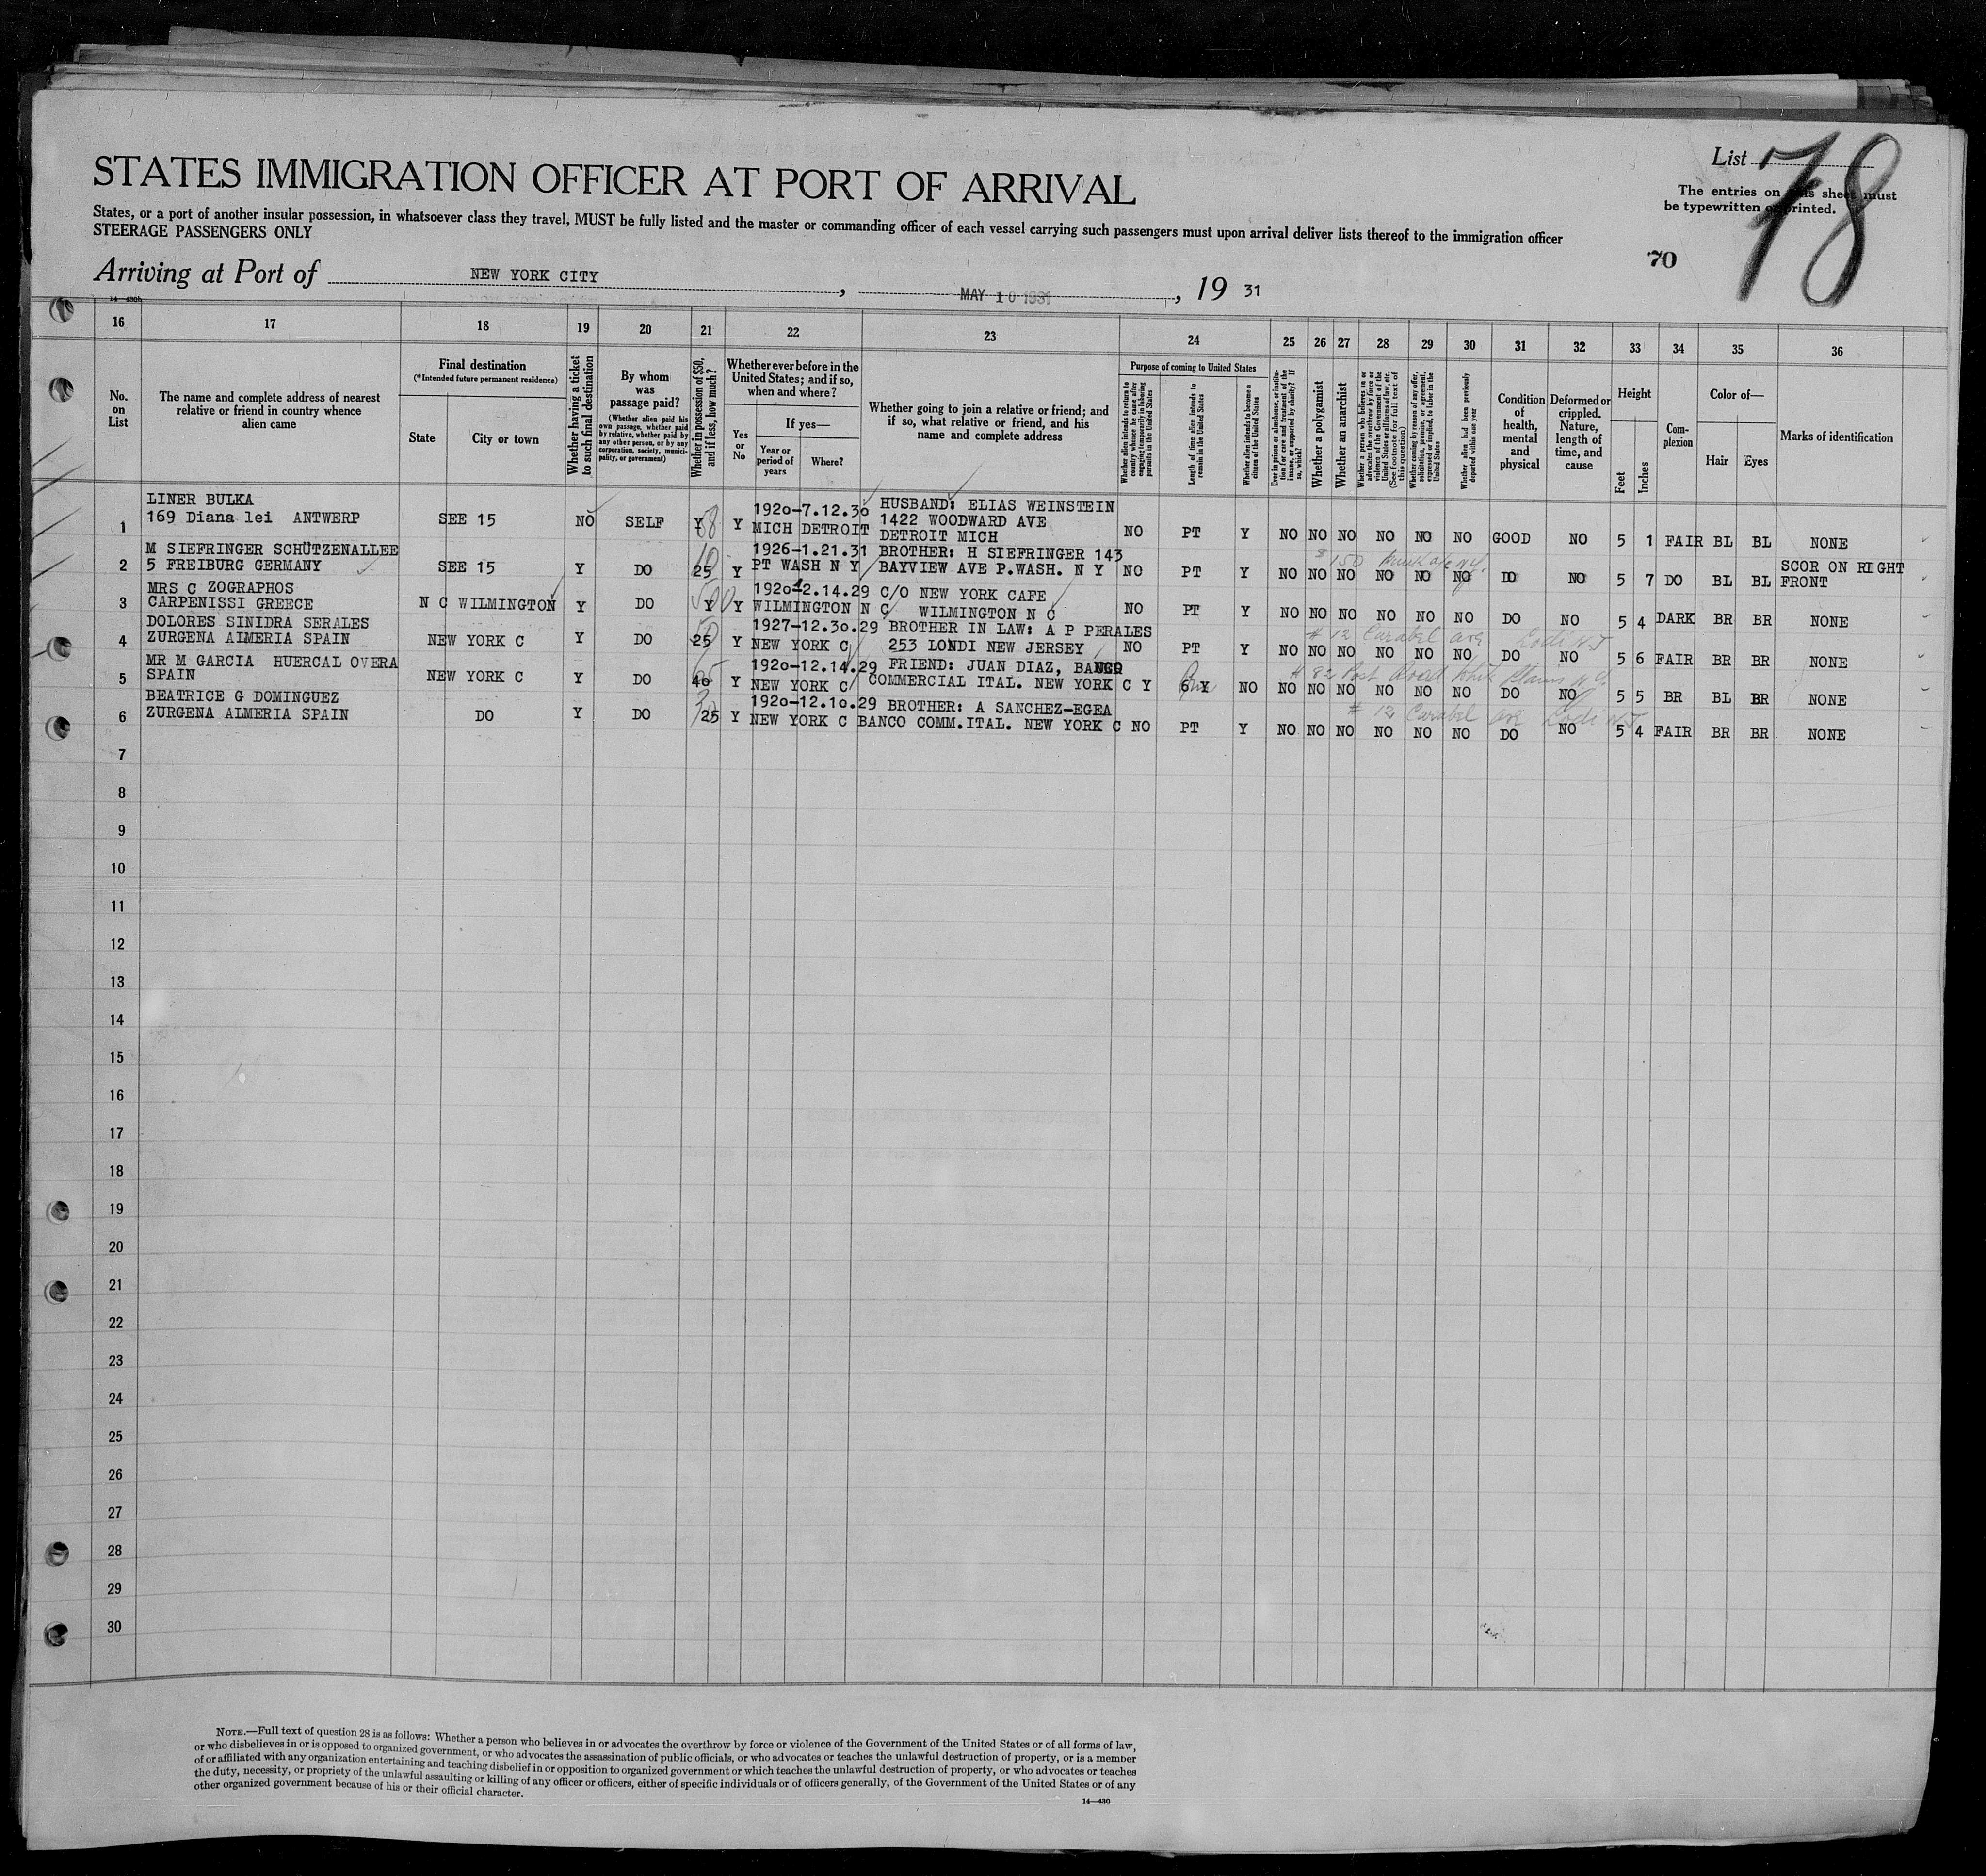 STATES IMMIGRATION OFFICER AT PORT OF ARRIVAL
List 78
The entries on this sheet must
be typewritten or printed.
States, or a port of another insular possession, in whatsoever class they travel, MUST be fully listed and the master or commanding officer of each vessel carrying such passengers must upon arrival deliver lists thereof to the immigration officer
STEERAGE PASSENGERS ONLY
70
Arriving at Port of NEW YORK CITY, MAY 10 1931, 19 31
14—430b
16 17 18 19 20 21 22 23 24 25 26 27 28 29 30 31 32 33 34 35 36
No.
on
List
The name and complete address of nearest
relative or friend in country whence
alien came
Final destination
(*Intended future permanent residence)
State
City or town
Whether having a ticket
to such final destination
By whom
was
passage paid?
(Whether alien paid his
own passage, whether paid
by relative, whether paid by
any other person, or by any
corporation, society, munici-
pality, or government)
Whether in possession of $50,
and if less, how much?
Whether ever before in the
United States; and if so,
when and where?
Yes
or
No
If yes—
Year or
period of
years
Where?
Whether going to join a relative or friend; and
if so, what relative or friend, and his
name and complete address
Purpose of coming to United States
Whether alien intends to return to
country whence he came after
engaging temporarily in laboring
pursuits in the United States
Length of time alien intends to
remain in the United States
Whether alien intends to become a
citizen of the United States
Ever in prison or almshouse, or institu-
tion for care and treatment of the
insane, or supported by charity? If
so, which?
Whether a polygamist
Whether an anarchist
Whether a person who believes in or
advocates the overthrow by force or
violence of the Government of the
United States or all forms of law, etc.
(See footnote for full text of
this question)
Whether coming by reason of any offer,
solicitation, promise, or agreement,
expressed or implied, to labor in the
United States
Whether alien had been previously
deported within one year
Condition
of
health,
mental
and
physical
Deformed or
crippled.
Nature,
length of
time, and
cause
Height
Feet
Inches
Com-
plexion
Color of—
Hair
Eyes
Marks of identification
LINER BULKA 1920-7.12.30 HUSBAND: ELIAS WEINSTEIN
1 169 Diana lei ANTWERP SEE 15 NO SELF Y 58 Y MICH DETROIT 1422 WOODWARD AVE
DETROIT MICH NO PT Y NO NO NO NO NO NO GOOD NO 5 1 FAIR BL BL NONE
M SIEFRINGER SCHÜTZENALLEE 10 1926-1.21.31 BROTHER: H SIEFRINGER 143 150
2 5 FREIBURG GERMANY SEE 15 Y DO 25 Y PT WASH N Y BAYVIEW AVE P.WASH. N Y NO PT Y NO NO NO NO NO NO DO NO 5 7 DO BL BL SCOR ON RIGHT
FRONT
MRS C ZOGRAPHOS 500 1920-2.14.29 C/O NEW YORK CAFE
3 CARPENISSI GREECE N C WILMINGTON Y DO Y Y WILMINGTON N C WILMINGTON N C NO PT Y NO NO NO NO NO NO DO NO 5 4 DARK BR BR NONE
DOLORES SINIDRA SERALES 50 1927-12.30.29 BROTHER IN LAW: A P PERALES # 12 Carabel ave Lodi N.J
4 ZURGENA AlMERIA SPAIN NEW YORK C Y DO 25 Y NEW YORK C 253 LONDI NEW JERSEY NO PT Y NO NO NO NO NO NO DO NO 5 6 FAIR BR BR NONE
MR M GARCIA HUERCAL OVERA 65 1920-12.14.29 FRIEND: JUAN DIAZ, BANCO # 82 Post Road White Plains N.Y.
5 SPAIN NEW YORK C Y DO 40 Y NEW YORK C COMMERCIAL ITAL. NEW YORK C Y 6 Y NO NO NO NO NO NO NO DO NO 5 5 BR BL BR NONE
BEATRICE G DOMINGUEZ 30 1920-12.10.29 BROTHER: A SANCHEZ-EGEA # 12 Carabel ave Lodi N.J
6 ZURGENA ALMERIA SPAIN DO Y DO 25 Y NEW YORK C BANCO COMM.ITAL. NEW YORK C NO PT Y NO NO NO NO NO NO DO NO 5 4 FAIR BR BR NONE
7
8
9
10
11
12
13
14
15
16
17
18
19
20
21
22
23
24
25
26
27
28
29
30
NOTE.—Full text of question 28 is as follows: Whether a person who believes in or advocates the overthrow by force or violence of the Government of the United States or of all forms of law,
or who disbelieves in or is opposed to organized government, or who advocates the assassination of public officials, or who advocates or teaches the unlawful destruction of property, or is a member
of or affiliated with any organization entertaining and teaching disbelief in or opposition to organized government or which teaches the unlawful destruction of property, or who advocates or teaches
the duty, necessity, or propriety of the unlawful assaulting or killing of any officer or officers, either of specific individuals or of officers generally, of the Government of the United States or of any
other organized government because of his or their official character.
14—430